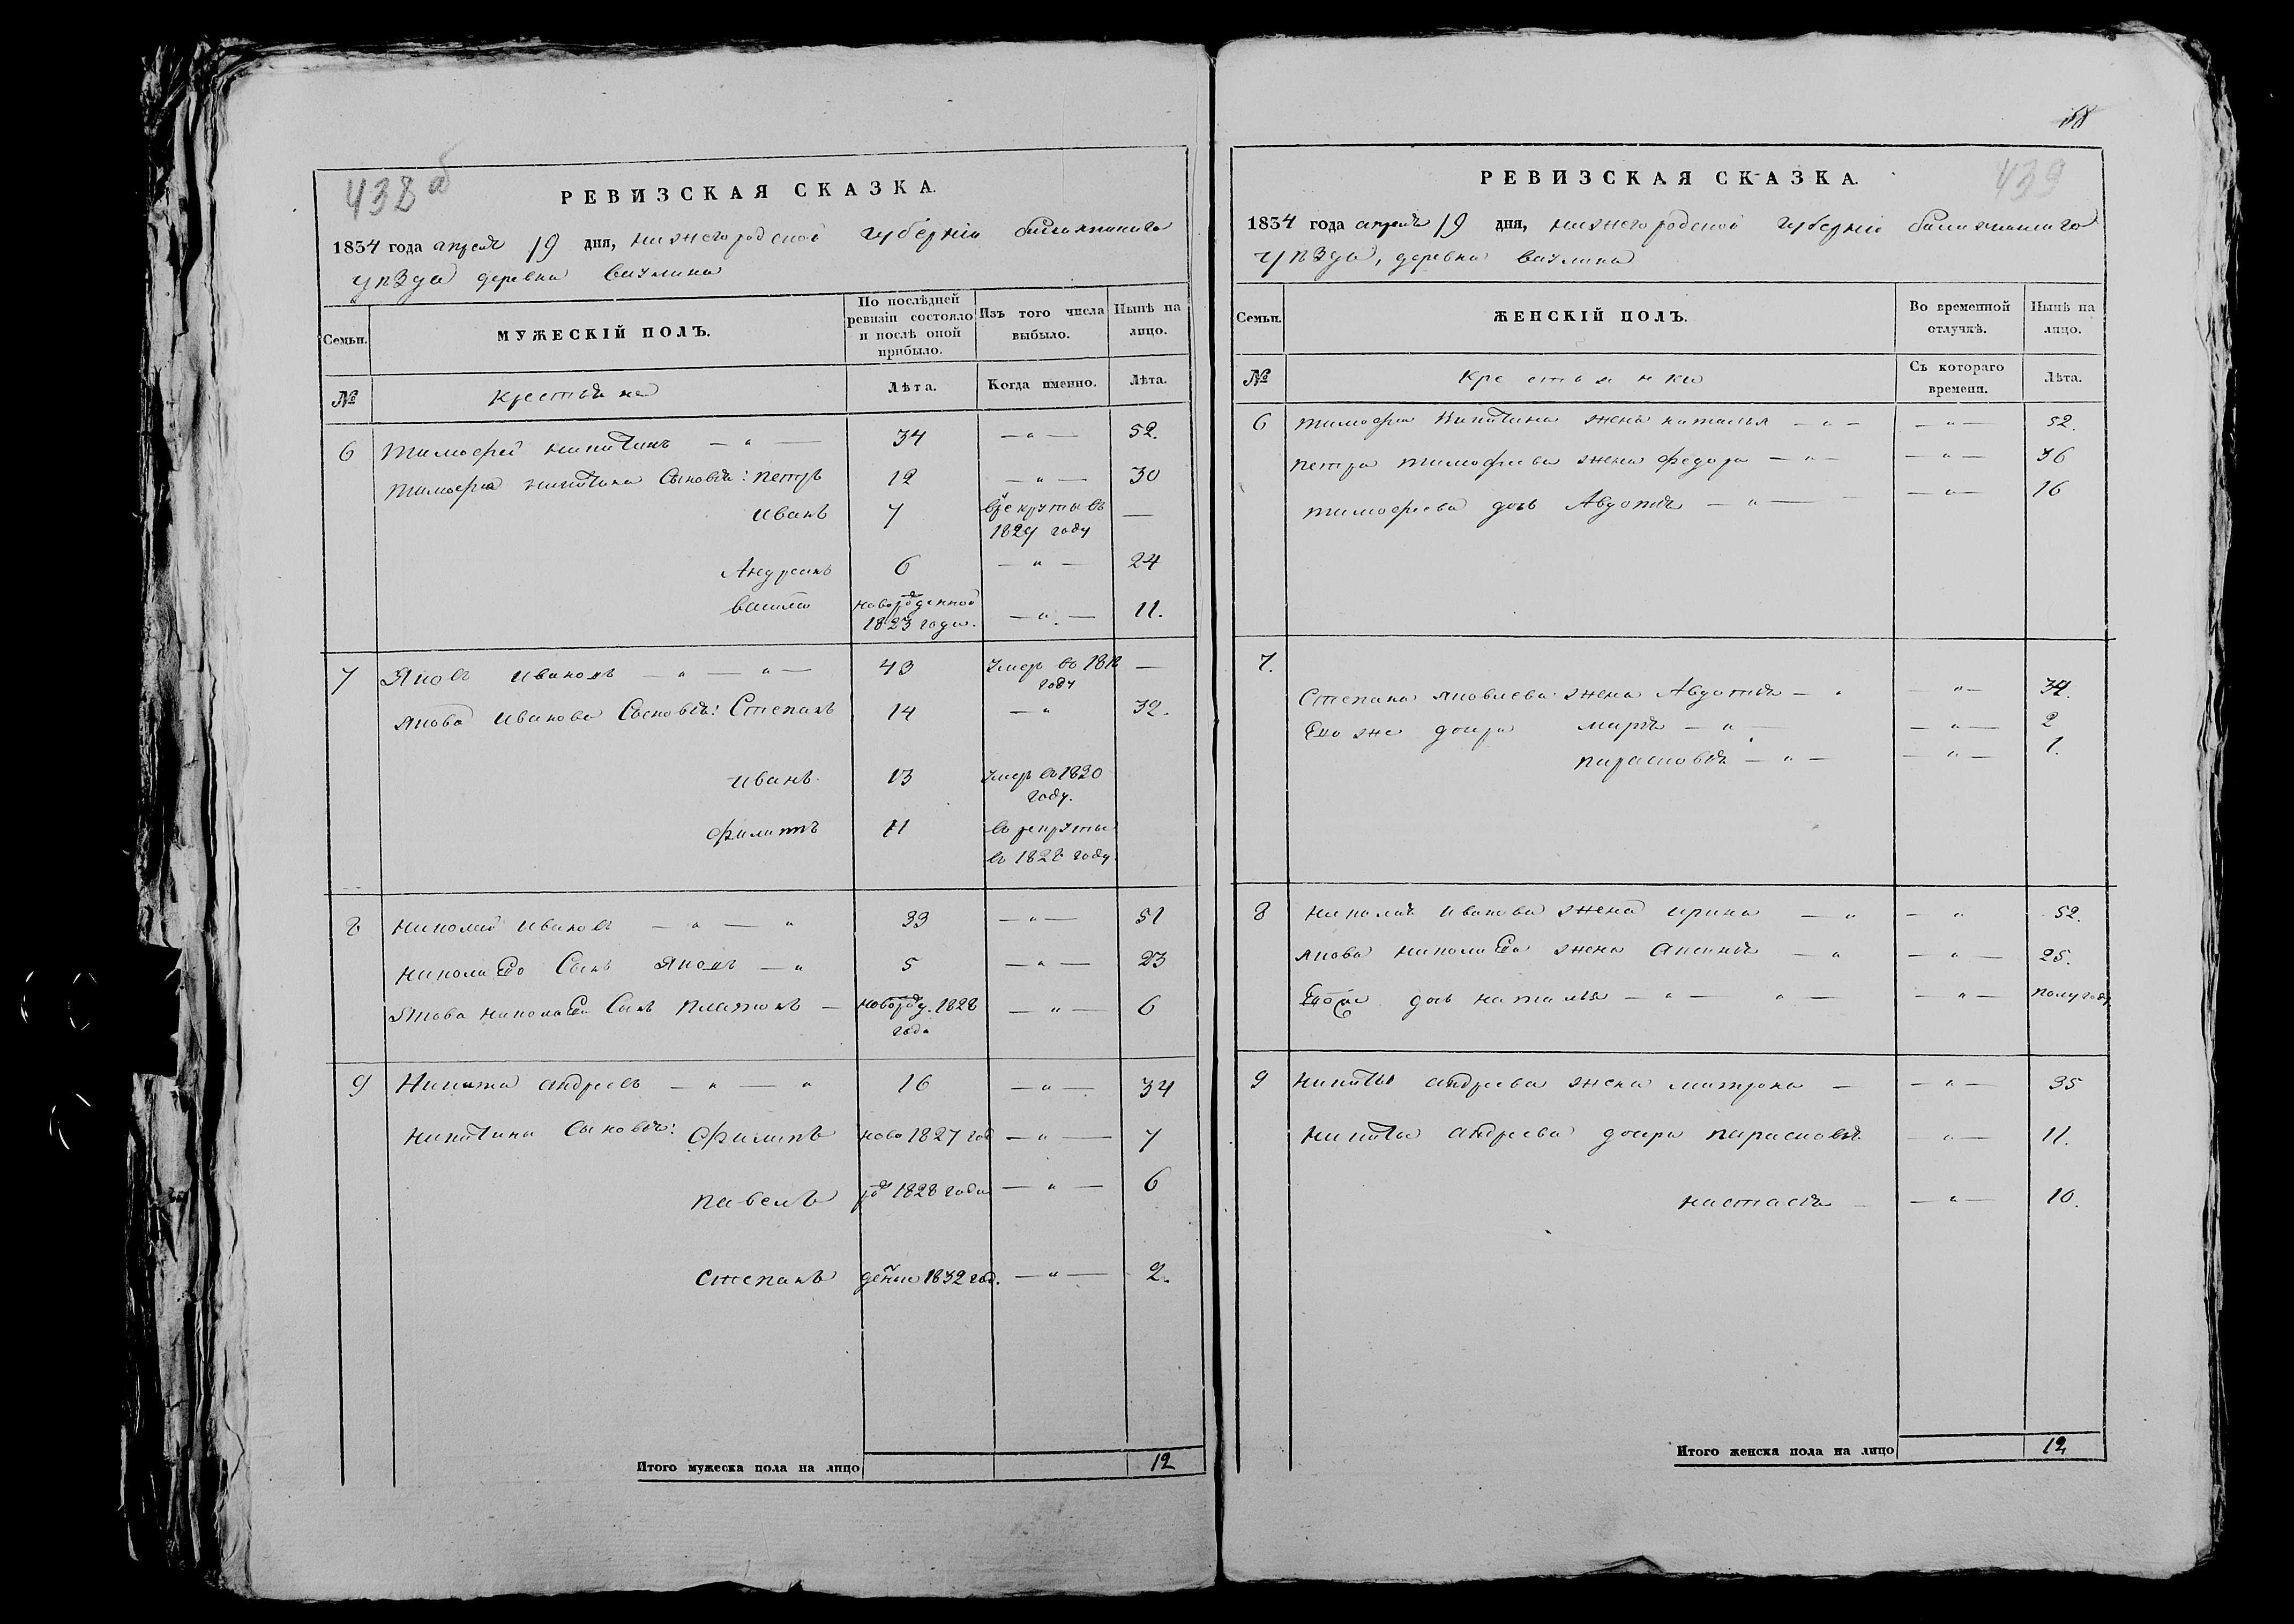 438 об
РЕВИЗСКАЯ СКАЗКА.
1834 года апреля 19 дня, нижегородской губернiи балахнинскаго
уѣзда деревни
Семьи. МУЖЕСКІЙ ПОЛЪ. По послѣдней ревизіи состояло и послѣ оной прибыло. Изъ того числа выбыло. Нынѣ на лицо.
№ крестьяне Лѣта. Когда именно. Лѣта.
6 Тимофей никитинъ — " — 34 — " — 52.
Тимофея никитина Сыновья: петръ 12 — " — 30
иванъ 7 в рекруты въ 1829 году —
Андреянъ 6 — " — 24
новорожденной 1823 года. — " — 11.
7 Яковъ ивановъ — " — " — 43 умеръ въ году —
якова иванова Сыновья: Степанъ 14 — " 32.
иванъ 13 умеръ въ 1820 году.
филиппъ 11 въ рекруты въ 1828 году.
8 николай ивановъ — " — " 33 — " — 51
Сынъ яковъ — " 5 — " — 23
якова Сынъ платонъ — новорожд. 1828 года — " — 6
9 Никита андреевъ — " — " 16 — " — 34
никитины Сыновья: филипъ ново 1827 год — " — 7
павелъ рож 1828 года — " — 6
степанъ денные 1832 год. — " — 2.
Итого мужеска пола на лицо 12
439
РЕВИЗСКАЯ СКАЗКА.
1834 года апреля 19 дня, нижегородской губернiи балахнинскаго
уѣзда, деревни
Семьи. ЖЕНСКІЙ ПОЛЪ. Во временной отлучкѣ. Нынѣ на лицо.
№ крестьянки Съ котораго времени. Лѣта.
6 тимофея никитина жена наталья — " — — " — 52.
петра тимофеева жена федора — " — — " — 36
тимофеева дочь Авдотья — " — — " — 16
7.
Степана яковлева жена Авдотья — " — " — 34.
Его же дочери марья — " — — " — 2
парасковья — " — — " — 1.
8 николая иванова жена ирина — " — " 52.
якова жена аксинья — " — " — 25.
дочь наталья — " — " — — " — полугоду
9 никиты андреева жена матрена — — " — 35
никиты андреева дочери парасковья — " — 11.
настасья — " — 10.
Итого женска пола на лицо 12